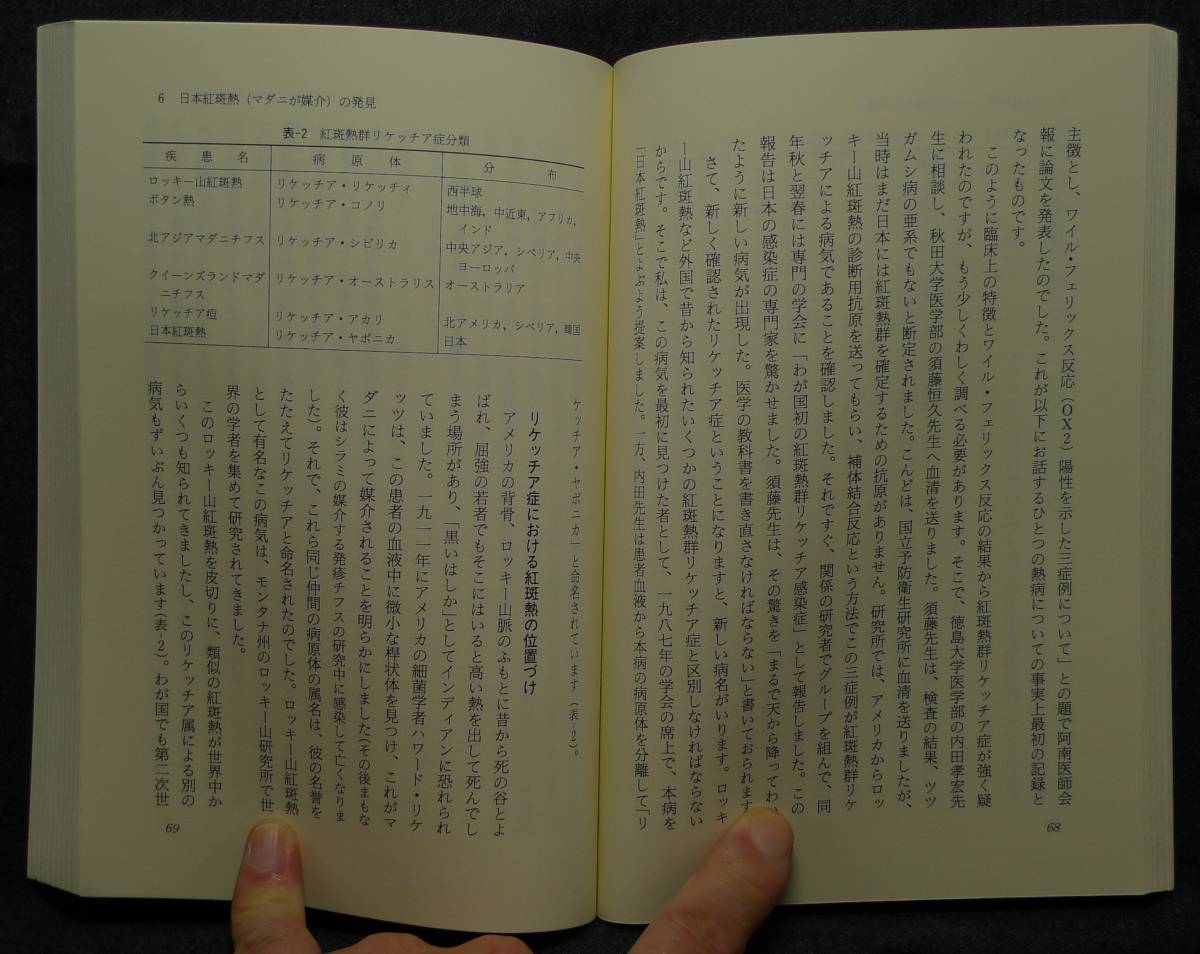 主徴とし、ワイル・フェリックス反応(OX2)陽性を示した三症例について」との題で阿南医師会
報に論文を発表したのでした。これが以下にお話するひとつの熱病についての事実上最初の記録と
なったものです。
このように臨床上の特徴とワイル・フェリックス反応の結果から紅斑熱群リケッチア症が強く疑
われたのですが、もう少しくわしく調べる必要があります。そこで、徳島大学医学部の内田孝宏先
生に相談し、秋田大学医学部の須藤恒久先生へ血清を送りました。須藤先生は、検査の結果、ツツ
ガムシ病の亜系でもないと断定されました。こんどは、国立予防衛生研究所に血清を送りましたが、
当時はまだ日本には紅斑熱群を確定するための抗原がありません。研究所では、アメリカからロッ
キー山紅斑熱の診断用抗原を送ってもらい、補体結合反応という方法でこの三症例が紅斑熱群リケ
ッチアによる病気であることを確認しました。それですぐ、関係の研究者でグループを組んで、同
年秋と翌春には専門の学会に「わが国初の紅斑熱群リケッチア感染症」として報告しました。この
報告は日本の感染症の専門家を驚かせました。須藤先生は、その驚きを「まるで天から降ってわい
たように新しい病気が出現した。医学の教科書を書き直さなければならない」と書いておられます
さて、新しく確認されたリケッチア症ということになりますと、新しい病名がいります。ロッキ
ー山紅斑熱など外国で昔から知られたいくつかの紅斑熱群リケッチア症と区別しなければならない
からです。そこで私は、この病気を最初に見つけた者として、一九八七年の学会の席上で、本病を
「日本紅斑熱」とよぶよう提案しました。一方、内田先生は患者血液から本病の病原体を分離して「リ
68
6 日本紅斑熱(マダニが媒介)の発見
表-2 紅斑熱群リケッチア症分類
疾患名 病原体 分布
ロッキー山紅斑熱 リケッチア・リケッチィ 西半球
ボタン熱 リケッチア・コノリ 地中海,中近東,アフリカ,
インド
北アジアマダニチフス リケッチア・シビリカ 中央アジア,シベリア,中央
ヨーロッパ
クイーンズランドマダ リケッチア・オーストラリス オーストラリア
ニチフス
リケッチア痘 リケッチア・アカリ 北アメリカ,シベリア,韓国
日本紅斑熱 リケッチア・ヤポニカ 日本
ケッチア・ヤポニカ」と命名されています(表-2)。
リケッチア症における紅斑熱の位置づけ
アメリカの背骨、ロッキー山脈のふもとに昔から死の谷とよ
ばれ、屈強の若者でもそこにはいると高い熱を出して死んでし
まう場所があり、「黒いはしか」としてインディアンに恐れられ
ていました。一九一一年にアメリカの細菌学者ハワード・リケ
ッツは、この患者の血液中に微小な桿状体を見つけ、これがマ
ダニによって媒介されることを明らかにしました(その後まもな
く彼はシラミの媒介する発疹チフスの研究中に感染して亡くなりま
した)。それで、これら同じ仲間の病原体の属名は、彼の名誉を
たたえてリケッチアと命名されたのでした。ロッキー山紅斑熱
として有名なこの病気は、モンタナ州のロッキー山研究所で世
界の学者を集めて研究されてきました。
このロッキー山紅斑熱を皮切りに、類似の紅斑熱が世界中か
らいくつも知られてきましたし、このリケッチア属による別の
病気もずいぶん見つかっています(表-2)。わが国でも第二次世
69